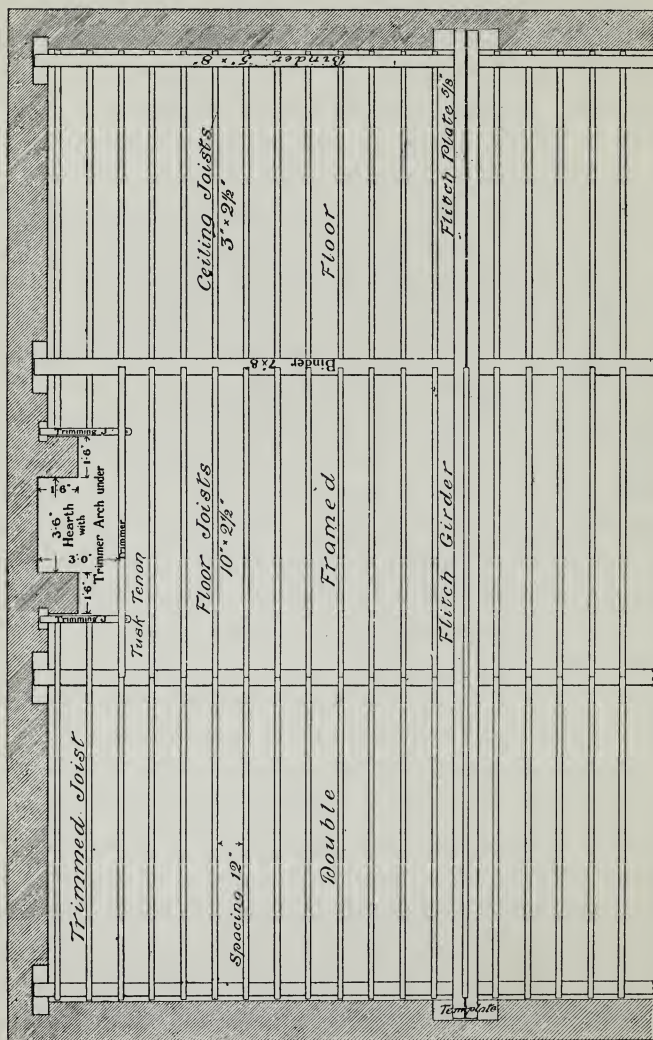 Binder 5" × 8"
Ceiling Joists
3" × 2½"
Floor
Flitch Plate 5/8"
Binder 7"×8"
Trimming J.
1'·6"
1'·6"
3'·6"
Hearth
with
Trimmer Arch under
3'·0"
Trimmer
1'·6"
Trimming J.
Tusk Tenon
Floor Joists
10" × 2½"
Framed
Flitch Girder
Trimmed Joist
Spacing 12"
Double
Template